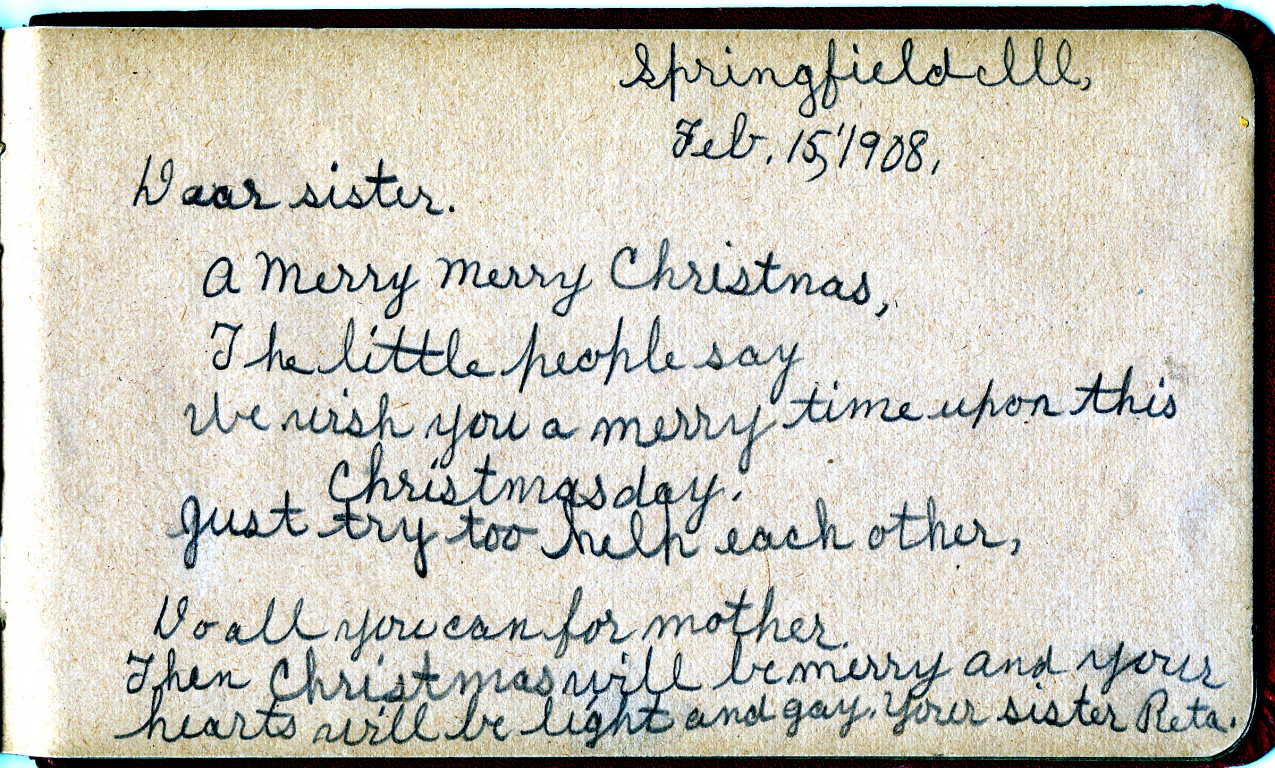 Springfield Ill,
Feb. 15, 1908.
Daar sister.
A Merry Merry Christnas,
The little people say
We wish you a merry time upon this
Christmas day.
Just try too help each other,
Do all you can for mother.
Then Christmas will be merry and your
hearts will be light and gay. Your sister Reta.